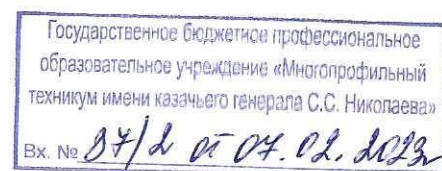 Государственное бюджетное профессиональное
образовательное учреждение «Многопрофильный
техникум имени казачьего генерала С.С. Николаева»
Вх. № 87/2 от 07.02.2023